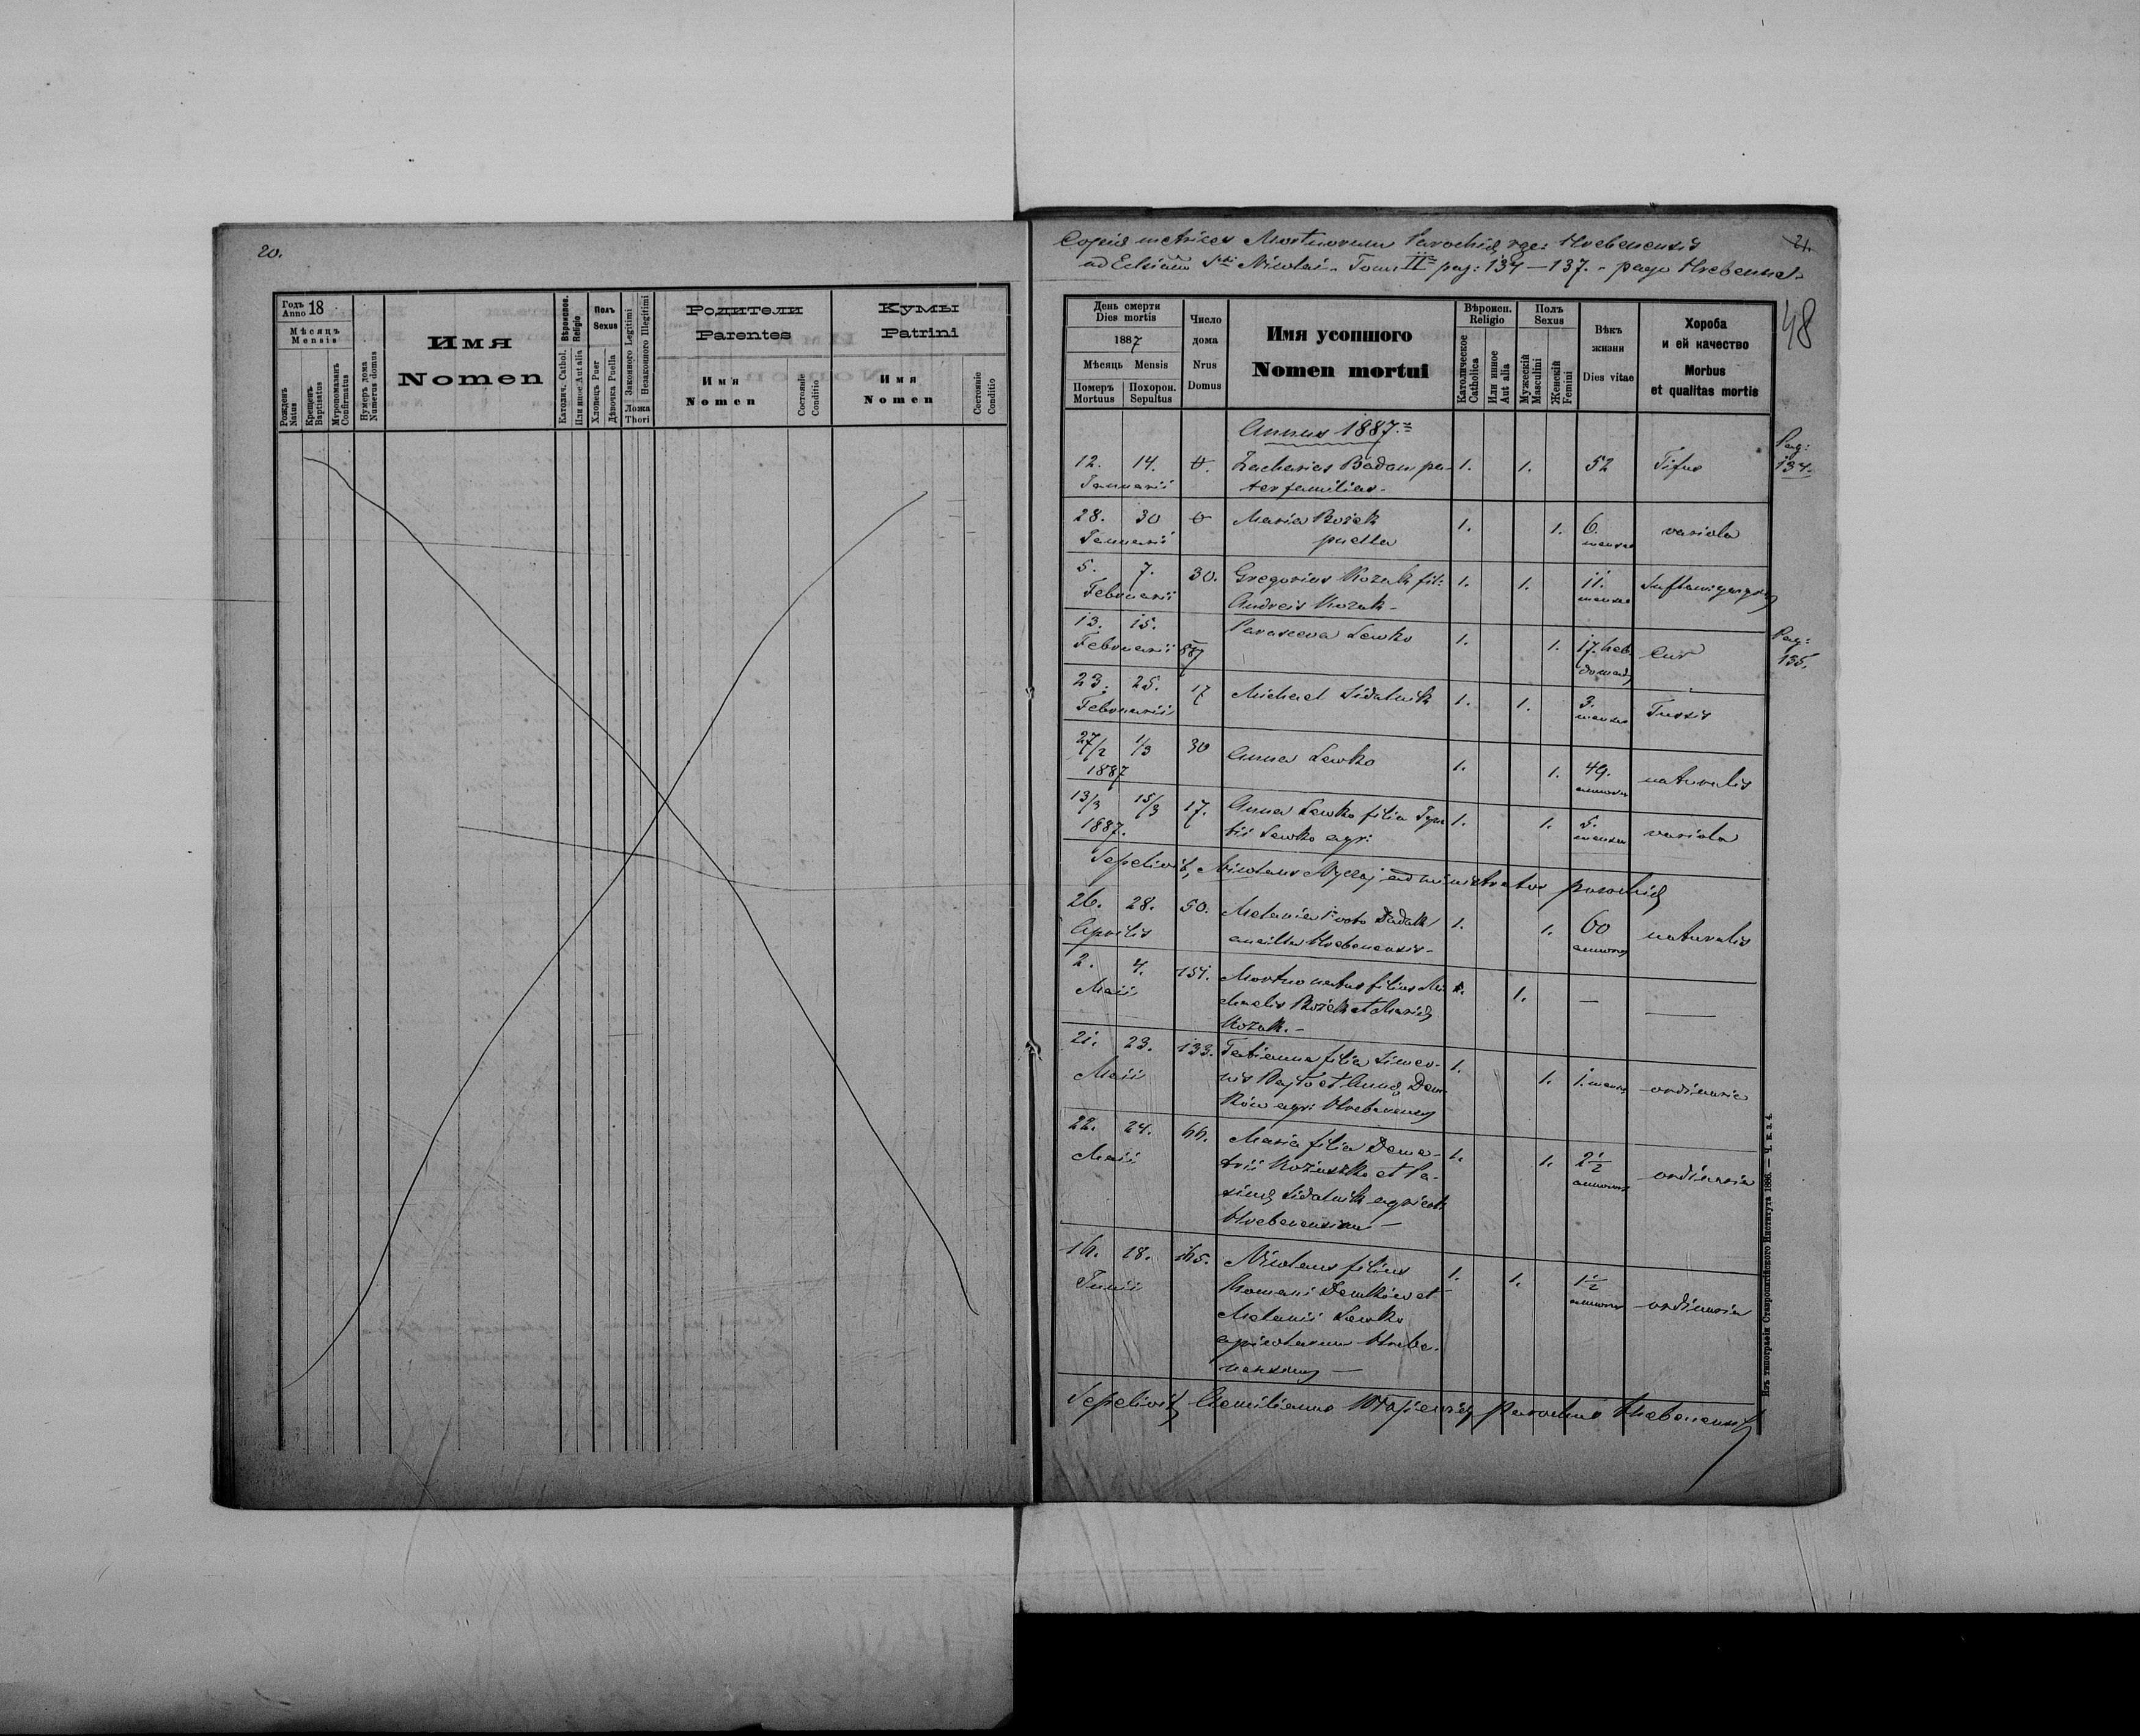 20.
Годъ
Anno 18
Мѣсяцъ
Mensis
Рожденъ
Natus
Крещенъ
Baptisatus
Мѵропомазанъ
Confirmatus
Нумеръ дома
Numerus domus
Имя
Nomen
Вѣроиспов.
Religio
Католич. Cathol.
Или иное Aut alia
Полъ
Sexus
Хлопецъ Puer
Дѣвочка Puella
Законного Legitimi
Незаконного Illegitimi
Ложа
Thori
Родители
Parentes
Имя
Nomen
Состояніе
Conditio
Кумы
Patrini
Имя
Nomen
Состояніе
Conditio
Copia metrices Mortuorum Parochię rgr: Hrebenensis
ad Eclsiam Sti Nicolai. Tom: II pag: 134–137. pago Hrebenne.
21.
48
День смерти
Dies mortis
1887
Мѣсяць Mensis
Померъ
Mortuus
Похорон.
Sepultus
Число
дома
Nrus
Domus
Имя усопшого
Nomen mortui
Вѣроисп.
Religio
Католическое
Catholica
Или инное
Aut alia
Полъ
Sexus
Мужескій
Masculini
Женскій
Femini
Вѣкъ
жизни
Dies vitae
Хороба
и ей качество
Morbus
et qualitas mortis
Annus 1887.
Pag:
134.
12. 14. Zacharias Badam pa- 1. 1. 52 Tifus
Januarii ter familias.
28. 30 Maria Rożek 1. 1. 6. variola
Januarii puella menses
5. 7. 30. Gregorius Kozak fil: 1. 1. 11.
Februarii Andreis Kozak menses
13. 15. Parasceva Lewko 1. 1. 17. heb
Februarii domad
Pag:
135.
23. 25. 17 Michael Sidalnik 1. 1. 3. Tussis
Februarii menses
27/2 1/3 30 Anna Lewko 1. 1. 49. naturalis
1887 annorum
13/3 15/3 17. Anna Lewko filia 1. 1. 5. variola
1887. Lewko agr: menses
Sepelivit, Nicolaus administrator parochię
26. 28. 50. Melania voto Dudak 1. 1. 60 naturalis
Aprilis ancilla Hrebenensis annorum
2. 4. 151. Mortuo natus filius Mi- 1. 1. —
Maii chaelis Rożek et Marię
Kozak. –
21. 23. 133. Tatianna filia Simeo- 1. 1. 1. mensis ordinaria
Maii nis et Annę Dem-
ków agr: Hrebenens
22. 24. 66. Maria filia Deme- 1. 1. 2½ ordinaria
Maii trii et Pa- annorum
Sidalnik agricol:
Hrebenensium —
16. 18. 165. Nicolaus filius 1. 1. 1½ ordinaria
Junii Romani Demków et annorum
Melanii Lewko
agricolarum Hrebe-
nensium —
Sepelivit parochus Hrebenensis
Изъ типографіи Ставропигійского Института 1886. — Ч. к. з. 4.